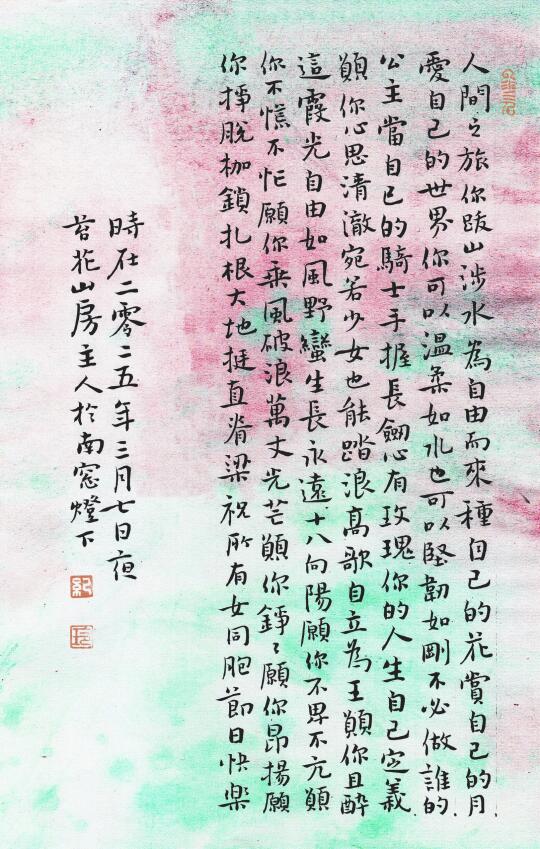 人間之旅你跋山涉水為自由而來種自己的花賞自己的月
愛自己的世界你可以溫柔如水也可以堅韌如剛不必做誰的
公主當自己的騎士手握長劍心有玫瑰你的人生自己定義
願你心思清澈宛若少女也能踏浪高歌自立為王願你且醉
這霞光自由如風野蠻生長永遠十八向陽願你不卑不亢願
你不慌不忙願你乘風破浪萬丈光芒願你錚〻願你昂揚願
你掙脫枷鎖扎根大地挺直脊梁祝所有女同胞節日快樂
時在二零二五年三月七日夜
苔花山房主人於南窓燈下
紀